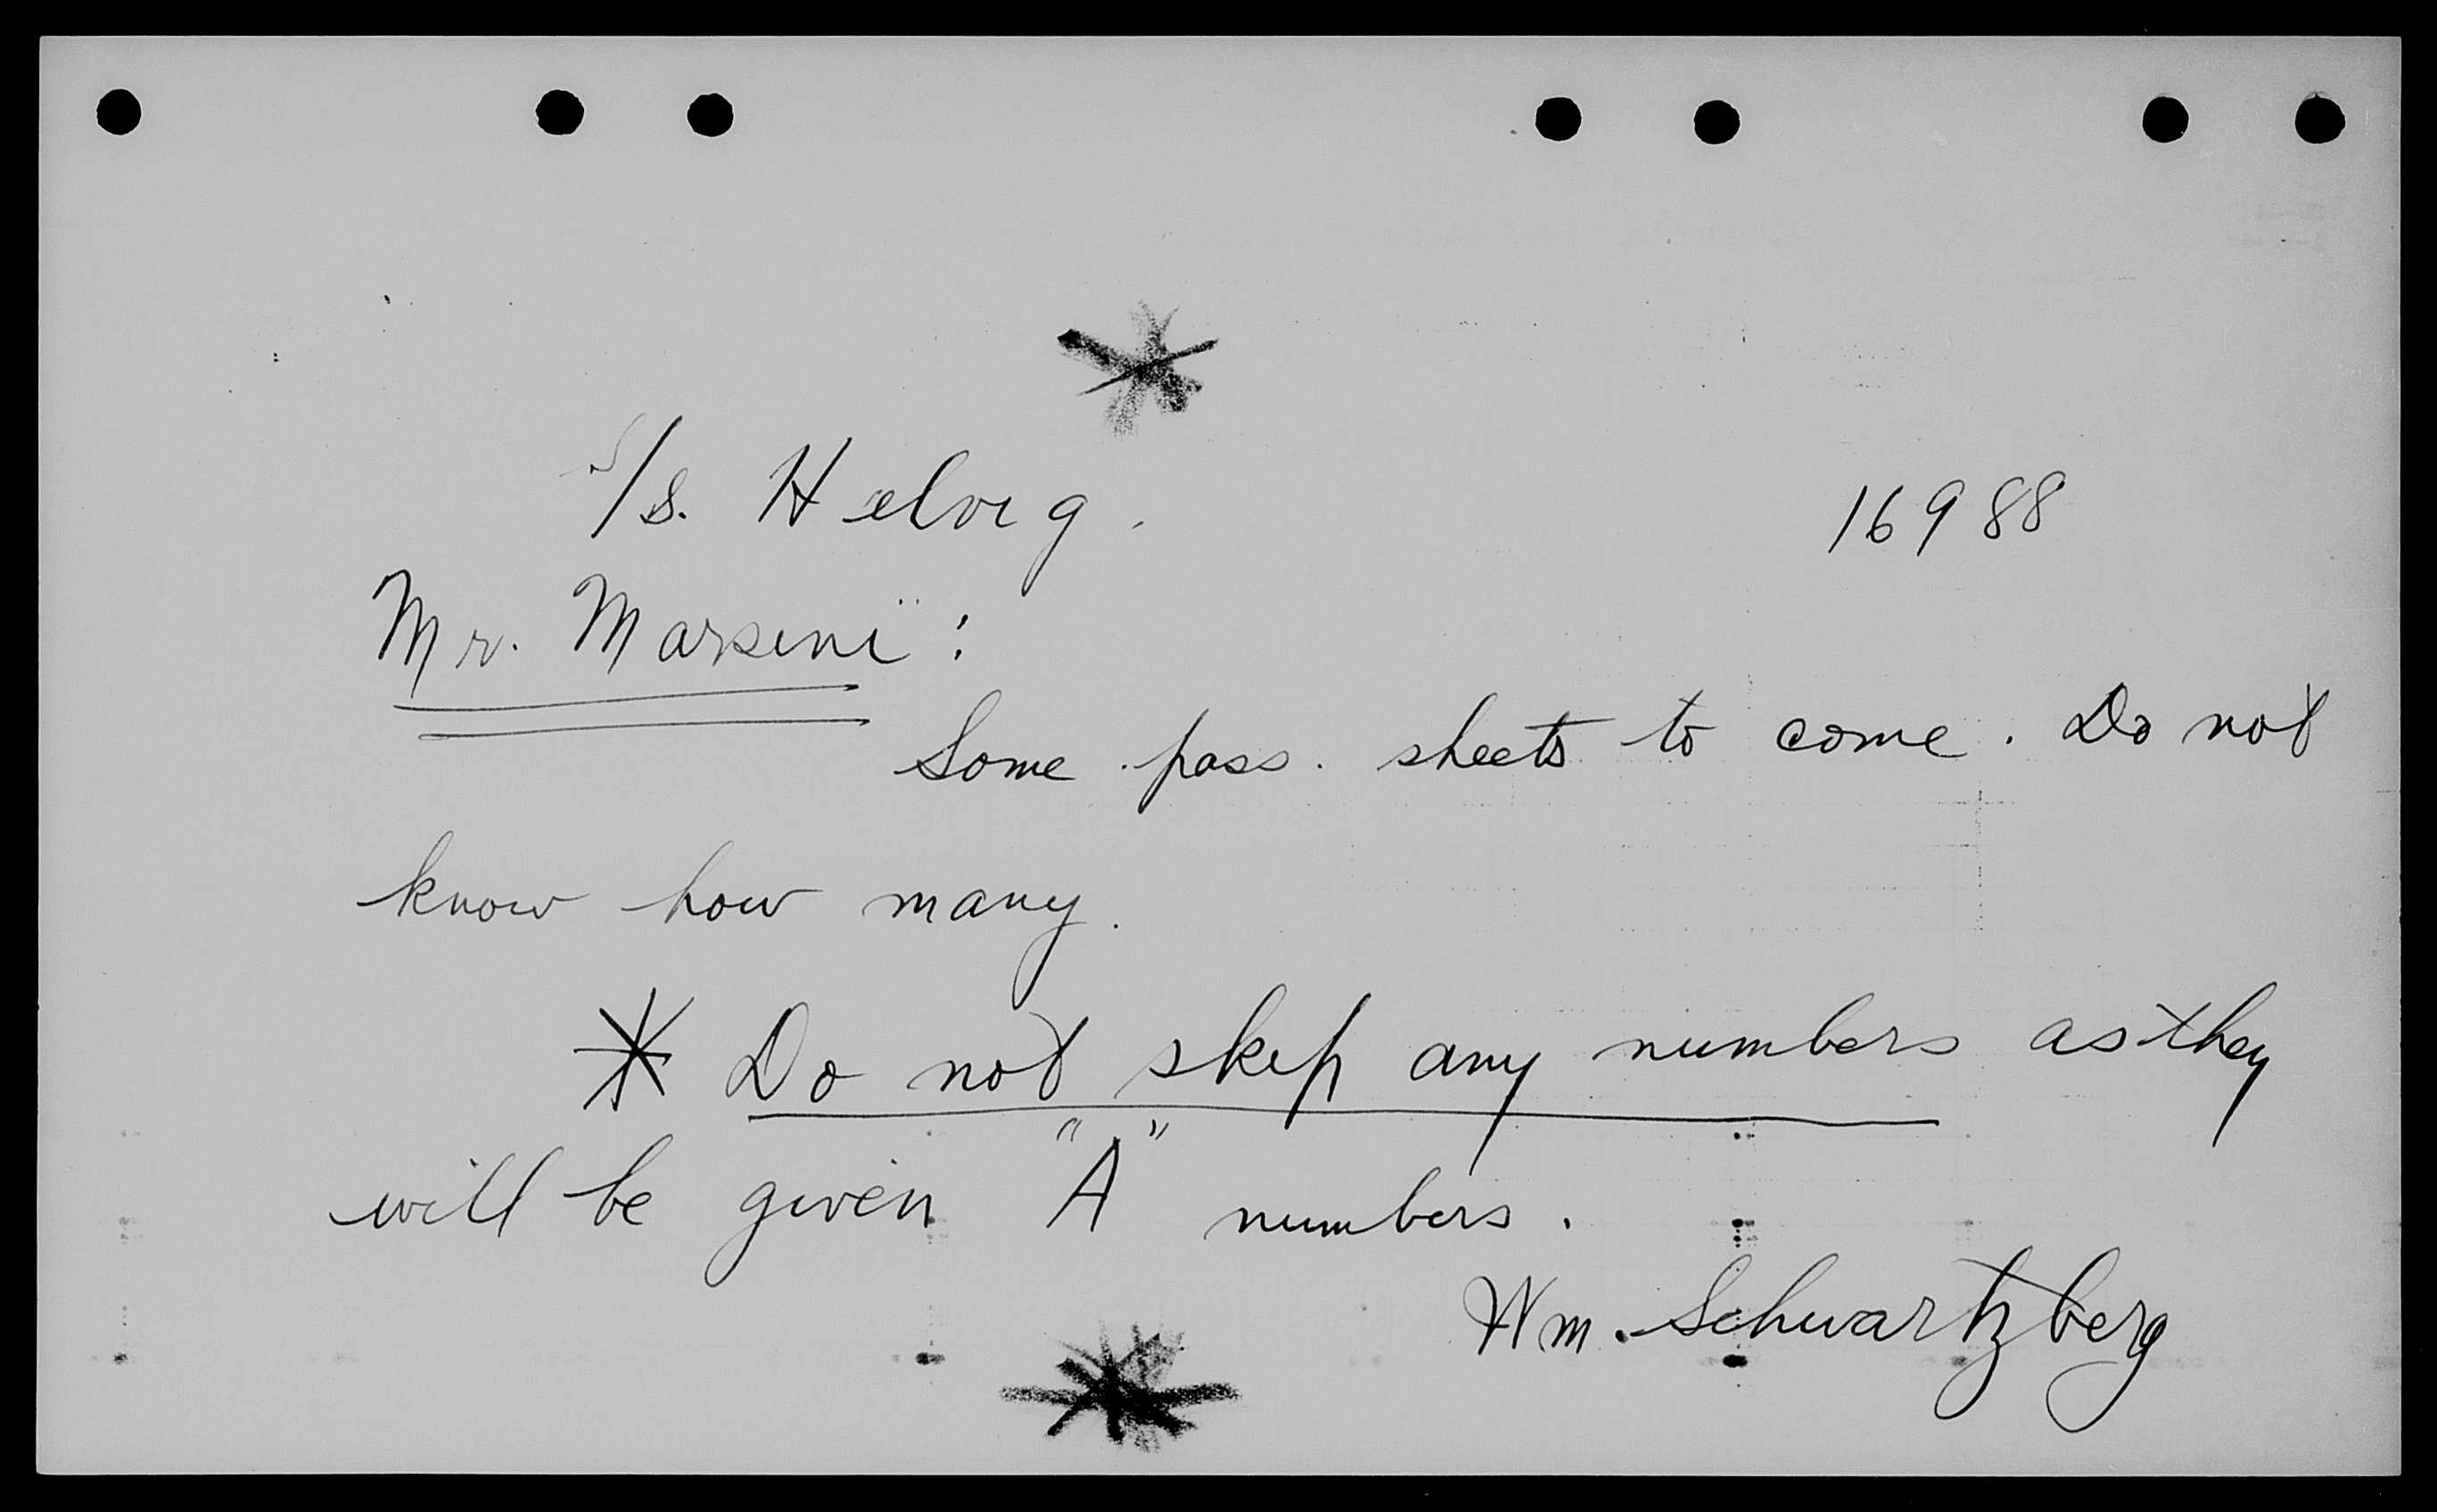 S/S. Helvig. 16988
Mr. Marseni:
Some pass. sheets to come. Do not
know how many.
* Do not skip any numbers as they
will be given "A" numbers.
Wm. Schwartzberg